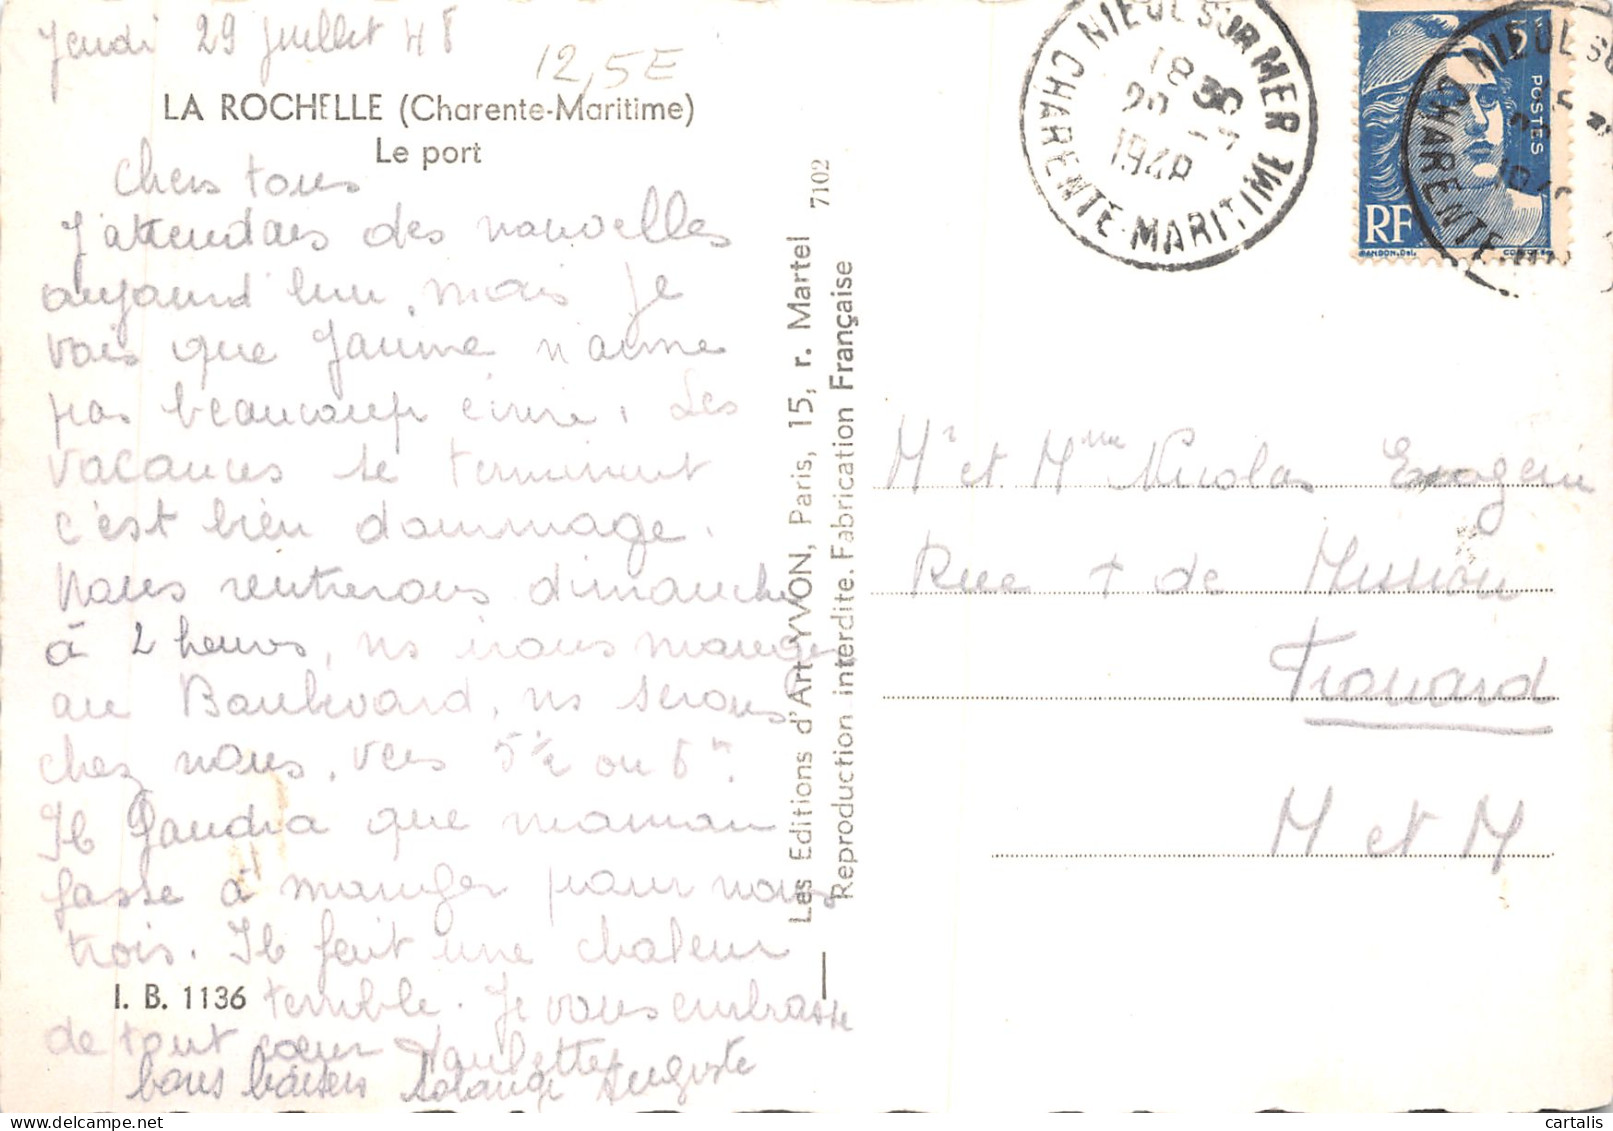 Jeudi 29 Juillet 48
12,5E
LA ROCHELLE (Charente-Maritime)
Le port
Chers tous
J'attendais des nouvelles
aujourd'hui, mais je
vois que Janine n'aime
pas beaucoup écrire. Les
vacances se terminent
c'est bien dommage.
Nous rentrerons dimanche
à 2 heures, ns irons manger
au Boulevard, ns serons
chez nous, vers 5 ½ ou 6 hr.
Il faudra que maman
fasse à manger pour nous
trois. Il fait une chaleur
terrible. Je vous embrasse
de tout cœur Paulette
bons baisers Solange Auguste
I. B. 1136
Les Editions d'Art YVON, Paris, 15, r. Martel 7102
Reproduction interdite. Fabrication Française
NIEUL SUR MER
18 30
1948
CHARENTE-MARITIME
POSTES
RF
NIEUL SU
CHARENTE-M
Mr et Mme Nicolas
Rue + de Mission
Frouard
M et M
cartalis